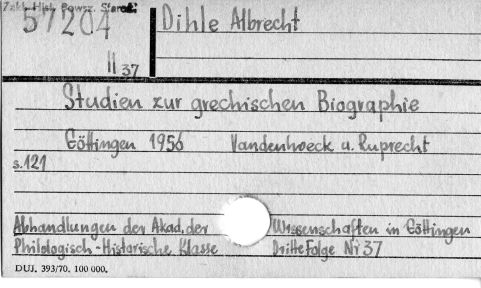 Zakł. Hist. Powsz. Staroż.
57204 Dihle Albrecht
II 37
Studien zur grechischen Biographie
Göttingen 1956 Vandenhoeck u. Ruprecht
s. 121
Abhandlungen der Akad. der Wissenschaften in Göttingen
Philologisch-Historische Klasse Dritte Folge Nr 37
DUJ. 393/70. 100 000.